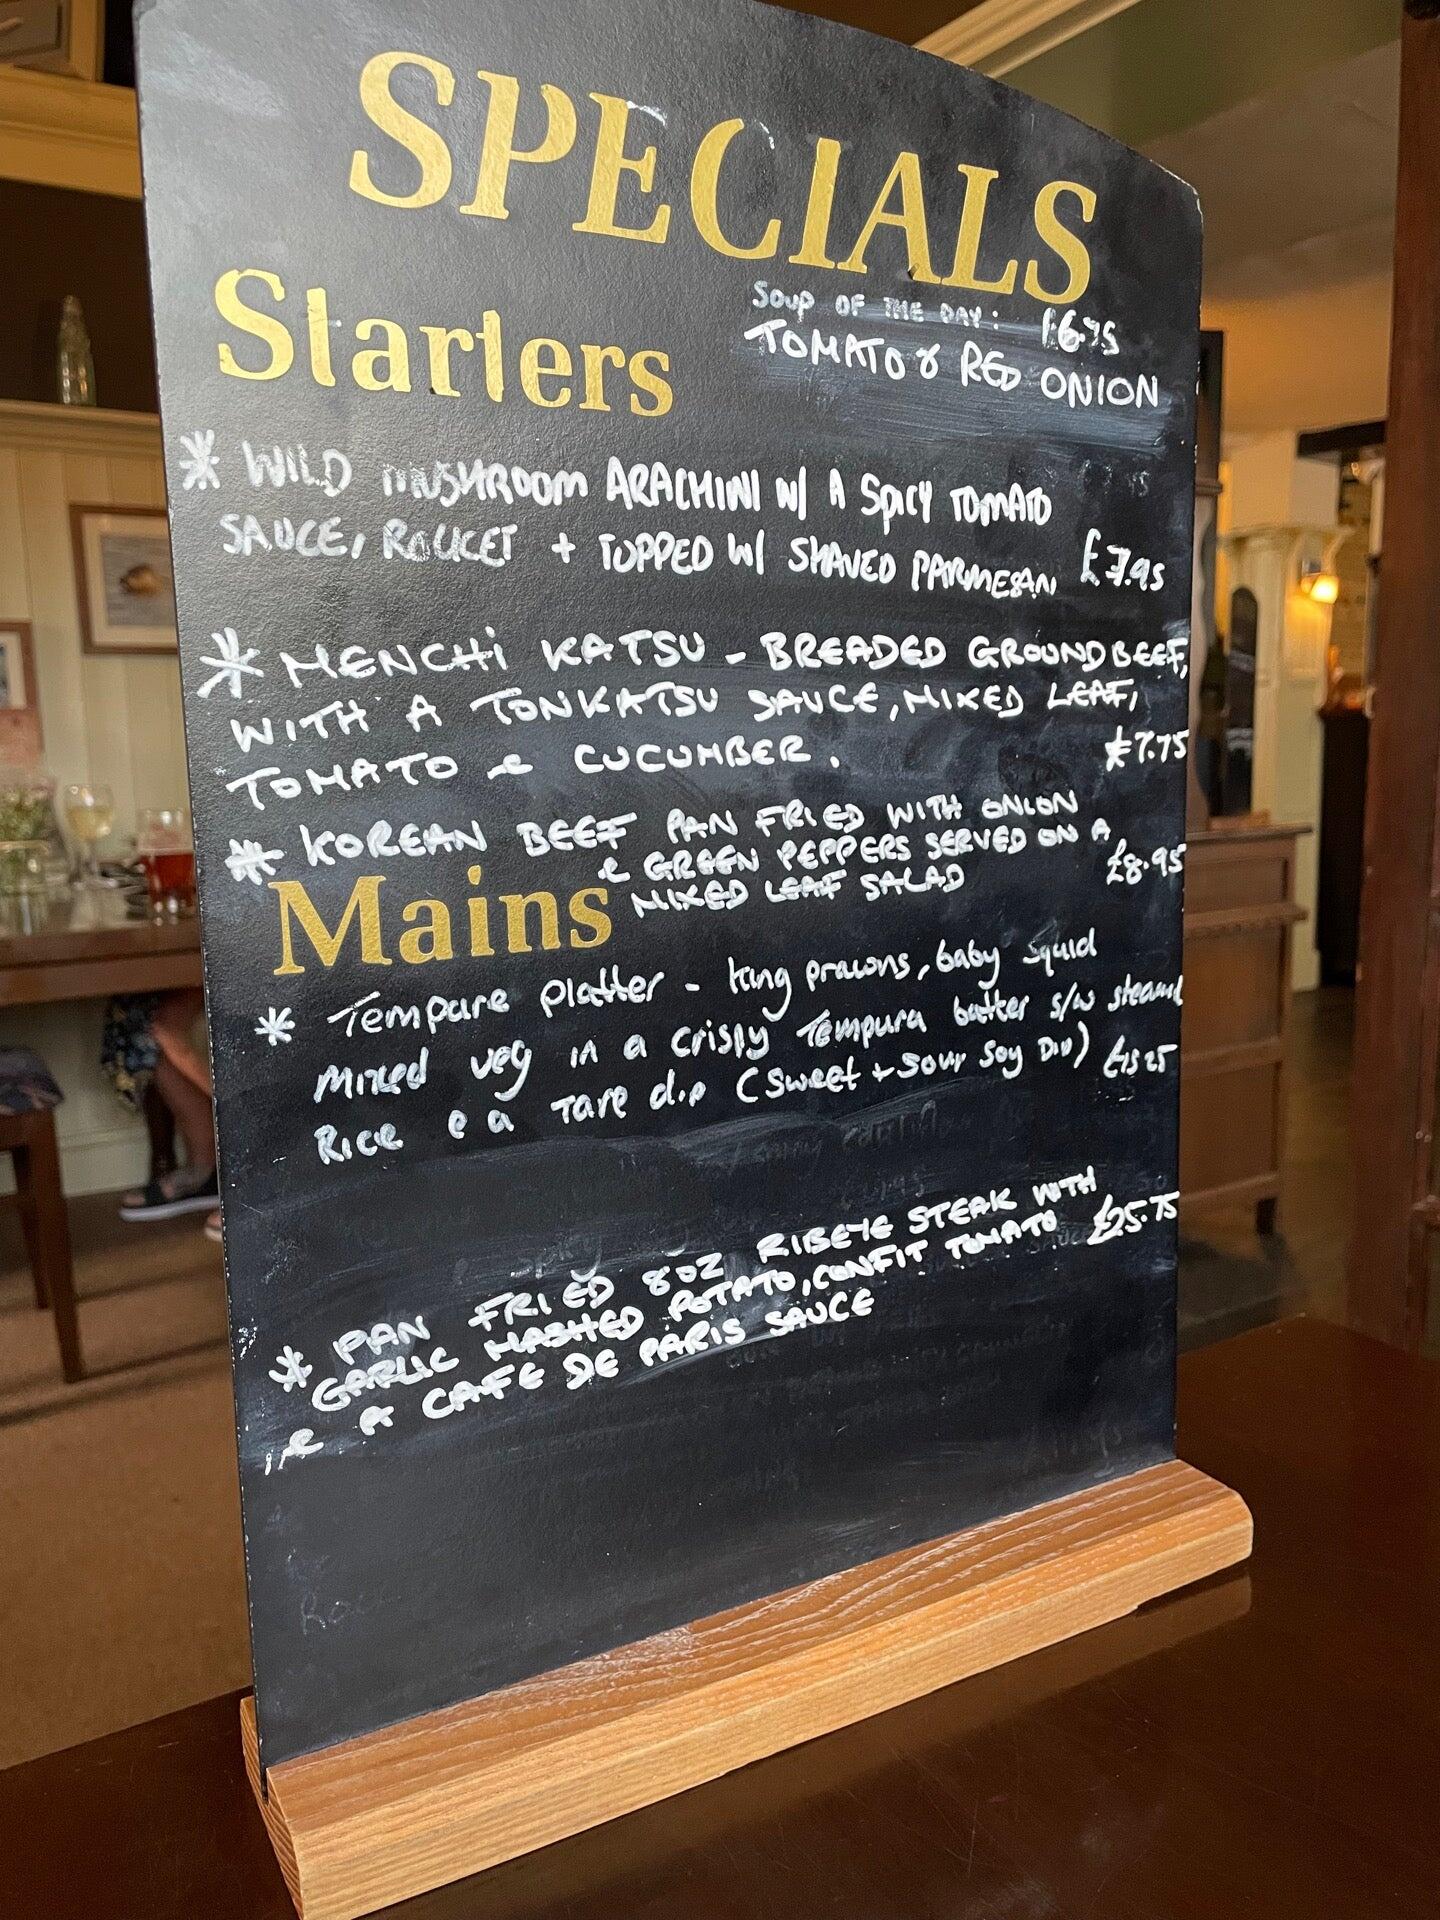 SPECIALS
Starters
SOUP OF THE DAY: £6.75
TOMATO & RED ONION
* WILD MUSHROOM ARACHINI W/ A SPICY TOMATO
SAUCE, ROUCET + TOPPED W/ SHAVED PARMESAN £7.95
* MENCHI KATSU - BREADED GROUND BEEF,
WITH A TONKATSU SAUCE, MIXED LEAF,
TOMATO & CUCUMBER. £7.75
* KOREAN BEEF PAN FRIED WITH ONION
& GREEN PEPPERS SERVED ON A
MIXED LEAF SALAD £8.95
Mains
* Tempare platter - King prawns, baby squid
mixed veg in a crispy Tempura batter s/w steamed
Rice & a Tare dip (Sweet + Sour Soy Dip) £15.25
* PAN FRIED 8OZ RIBEYE STEAK WITH
GARLIC MASHED POTATO, CONFIT TOMATO £25.75
& A CAFE DE PARIS SAUCE